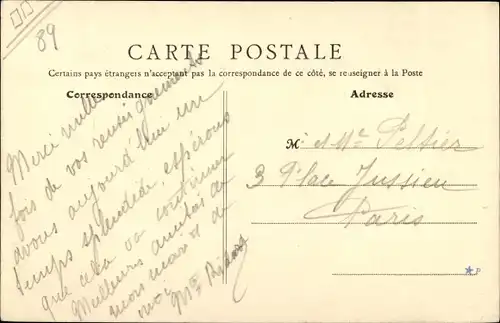 89
CARTE POSTALE
Certains pays étrangers n'acceptent pas la correspondance de ce côté, se renseigner à la Poste
Correspondance
Adresse
Merci mille
fois de vos
avons aujourd'hui un
temps splendide, espérons
que cela va continuer
Meilleures amitiés de
mon mari & de
moi
M. et Mme Peltier
3 Place Jussieu
Paris